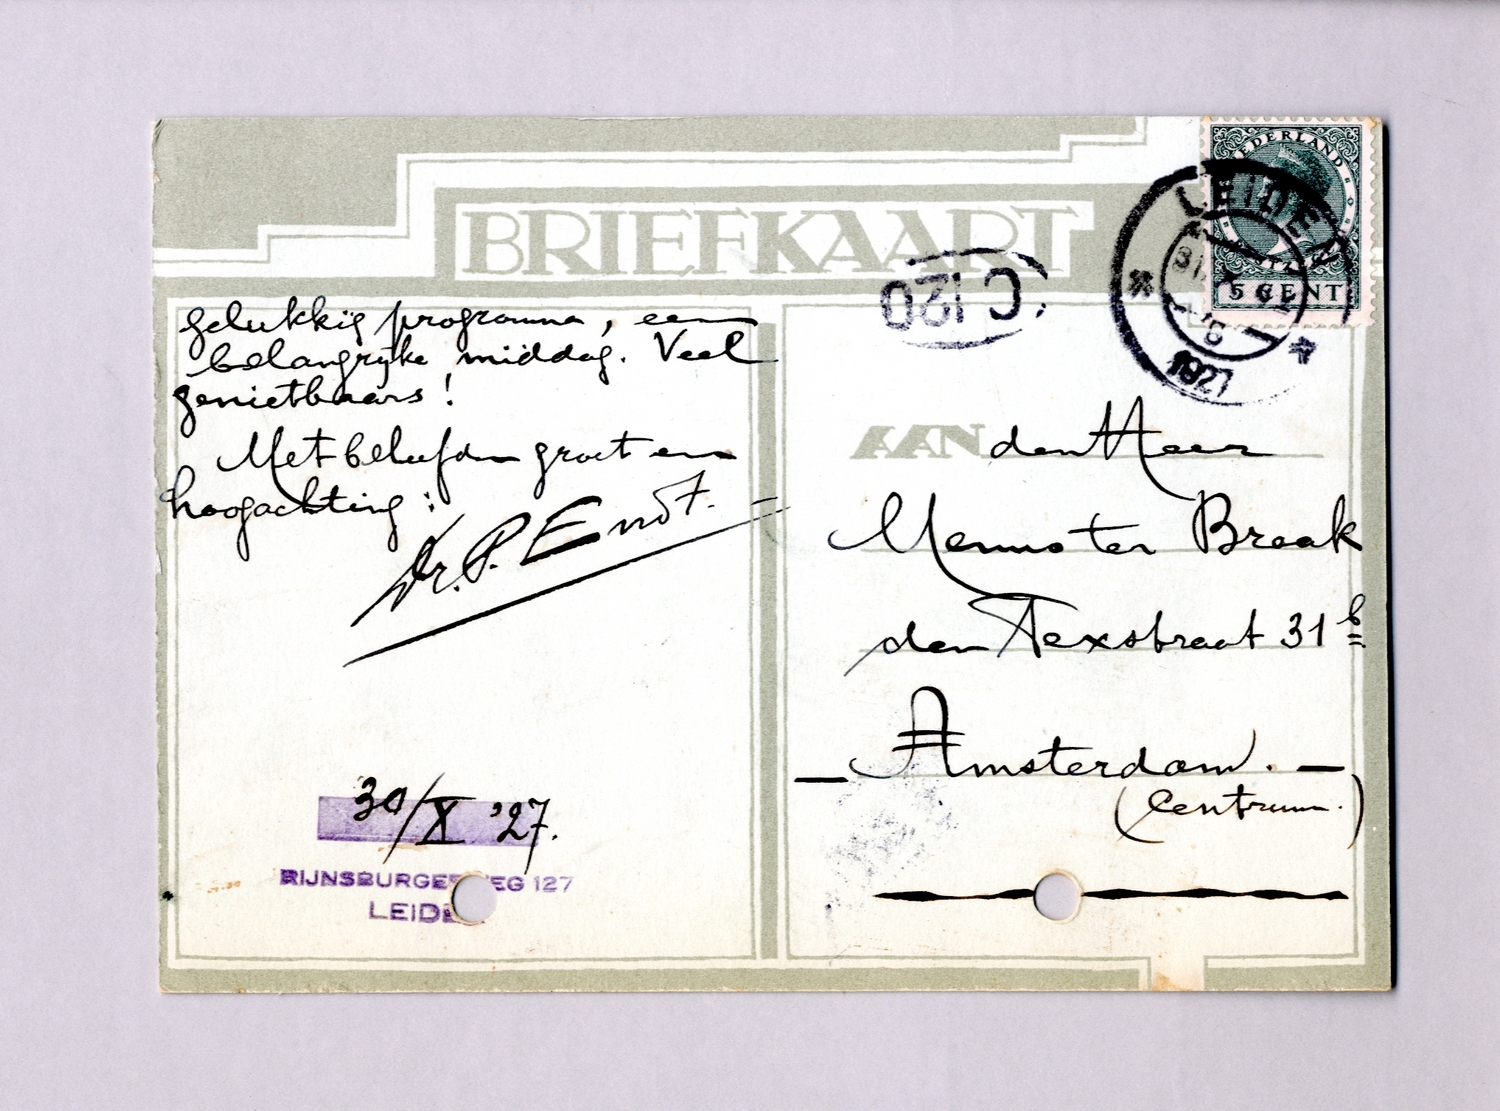 BRIEFKAART
NEDERLAND
5 CENT
LEIDEN
1927
C 120
gelukkig programma, een
belangrijke middag. Veel
genietbaars!
Met beleefden groet en
hoogachting:
Dr. P. Endt.
30/X '27.
RIJNSBURGERWEG 127
LEIDEN
AAN den Heer
Menno ter Braak
den Texstraat 31 b
Amsterdam.
(Centrum.)